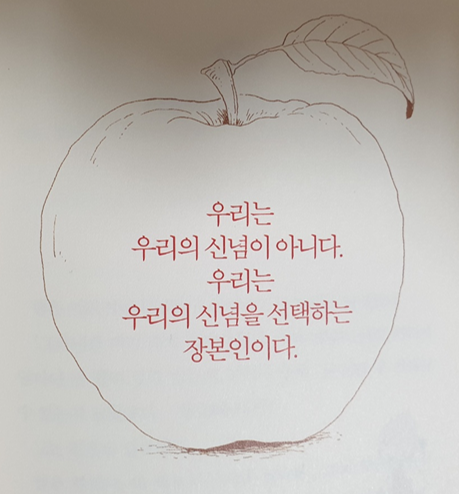 우리는
우리의 신념이 아니다.
우리는
우리의 신념을 선택하는
장본인이다.